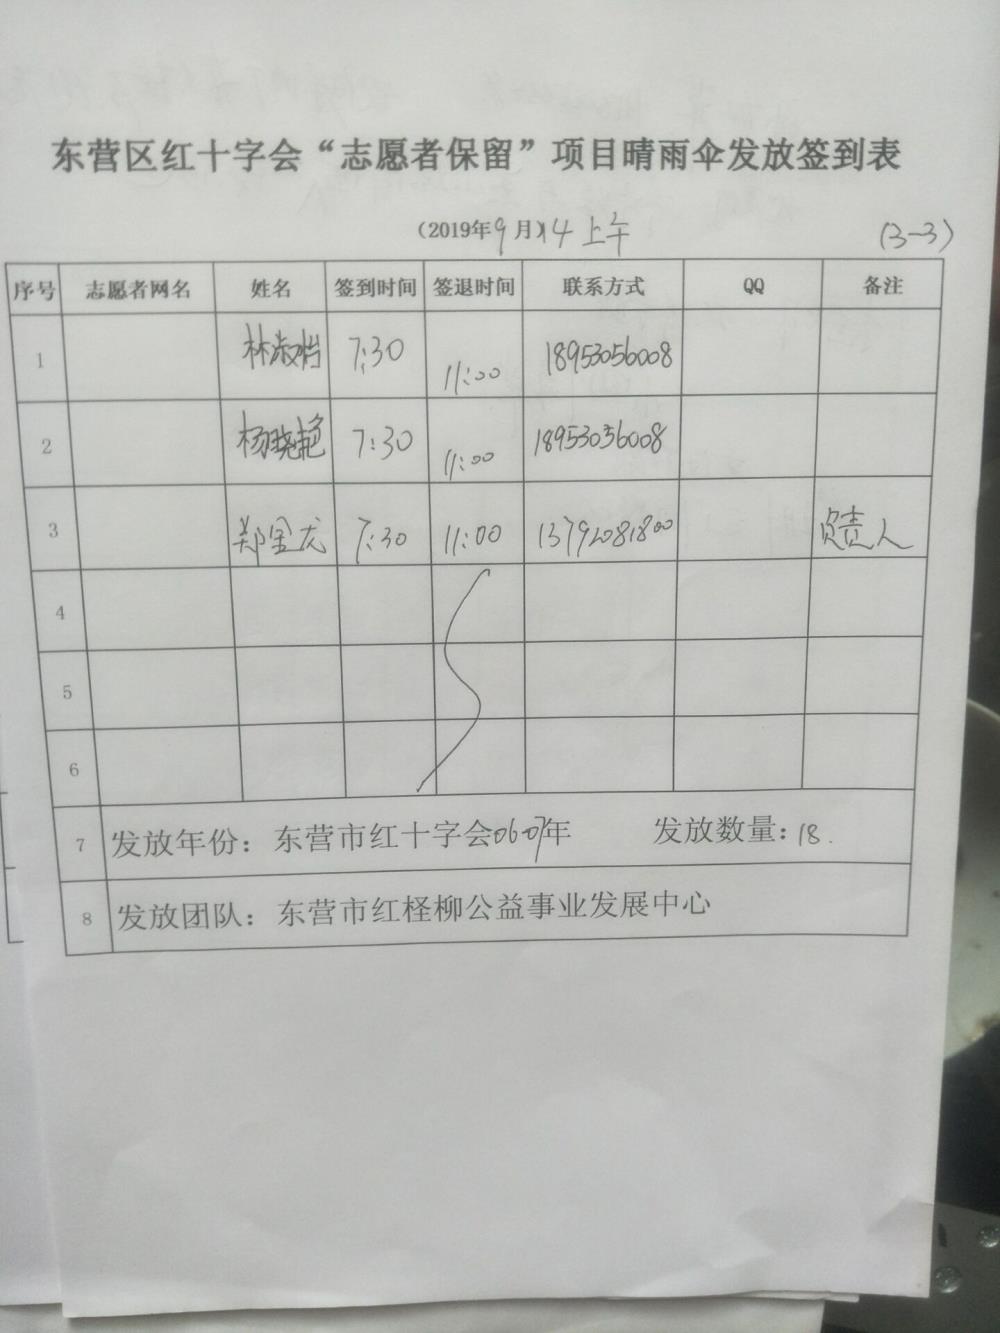 东营区红十字会“志愿者保留”项目晴雨伞发放签到表
（2019年9月14上午 (3-3)
序号 志愿者网名 姓名 签到时间 签退时间 联系方式 QQ 备注
1 林淑怡 7:30 11:00 18953056008
2 杨晓艳 7:30 11:00 18953056008
3 郑金龙 7:30 11:00 13792081800 负责人
4
5
6
7 发放年份：东营市红十字会06-07年 发放数量：18.
8 发放团队：东营市红柽柳公益事业发展中心